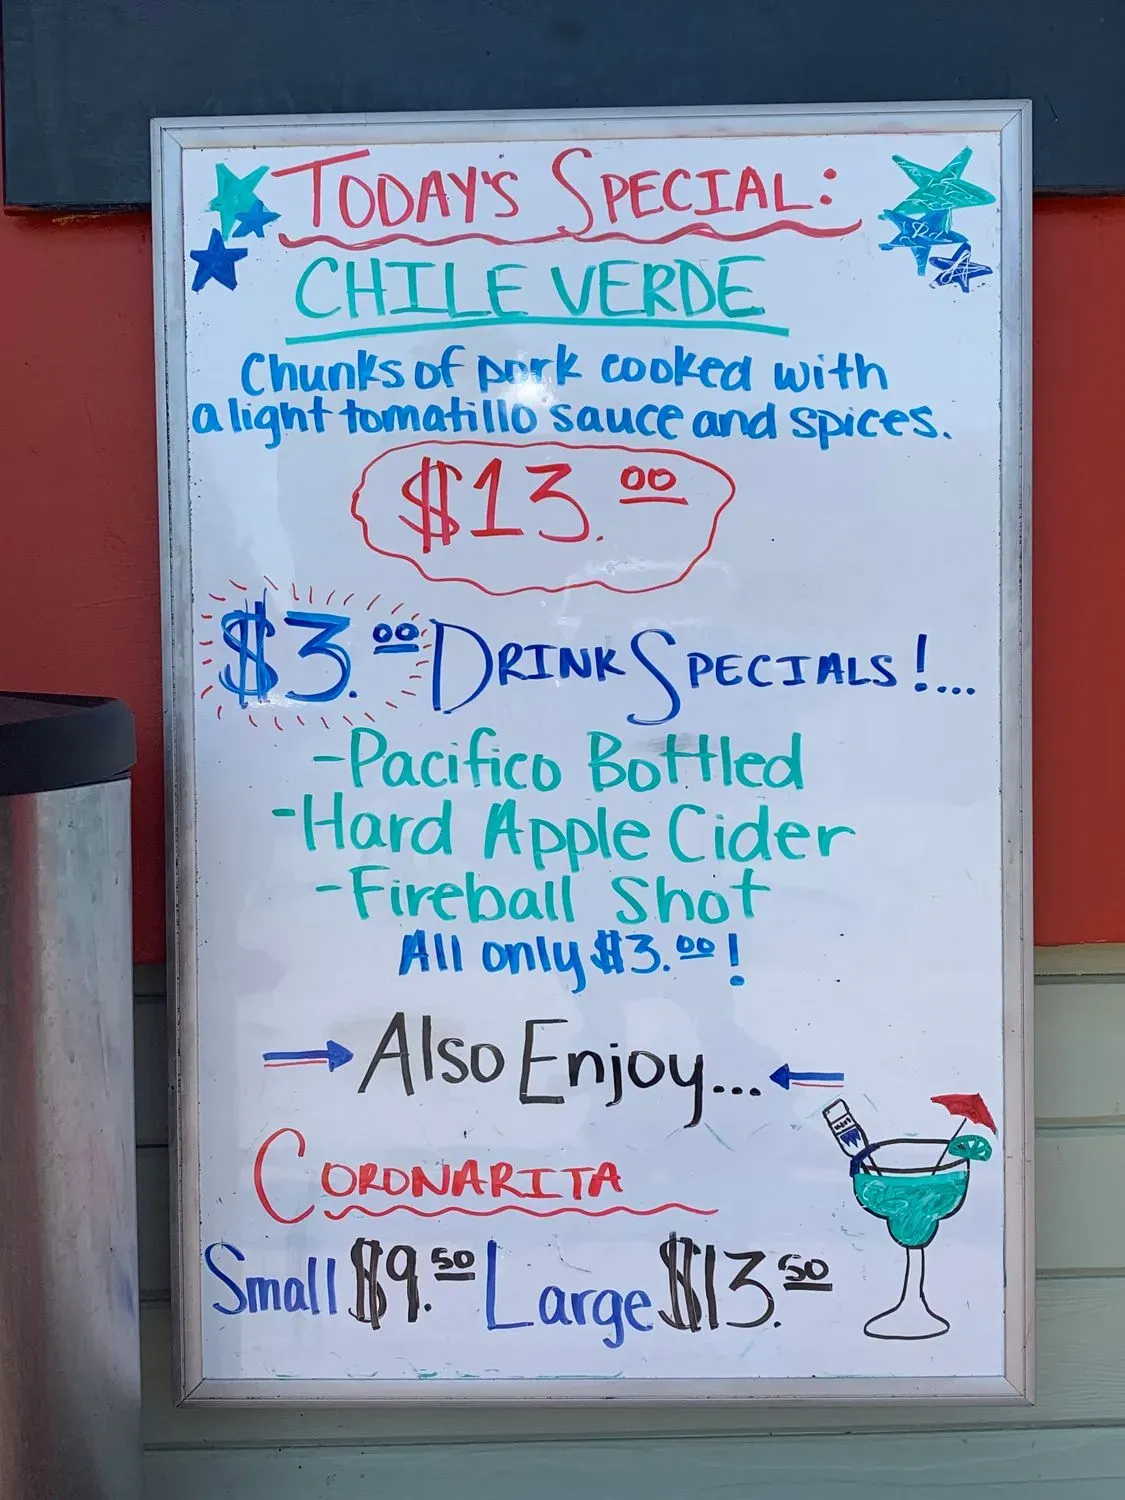 TODAY'S SPECIAL:
CHILE VERDE
Chunks of pork cooked with
a light tomatillo sauce and spices.
$13.00
$3.00 DRINK SPECIALS!...
-Pacifico Bottled
-Hard Apple Cider
-Fireball Shot
All only $3.00!
Also Enjoy...
CORONARITA
Small $9.50 Large $13.50